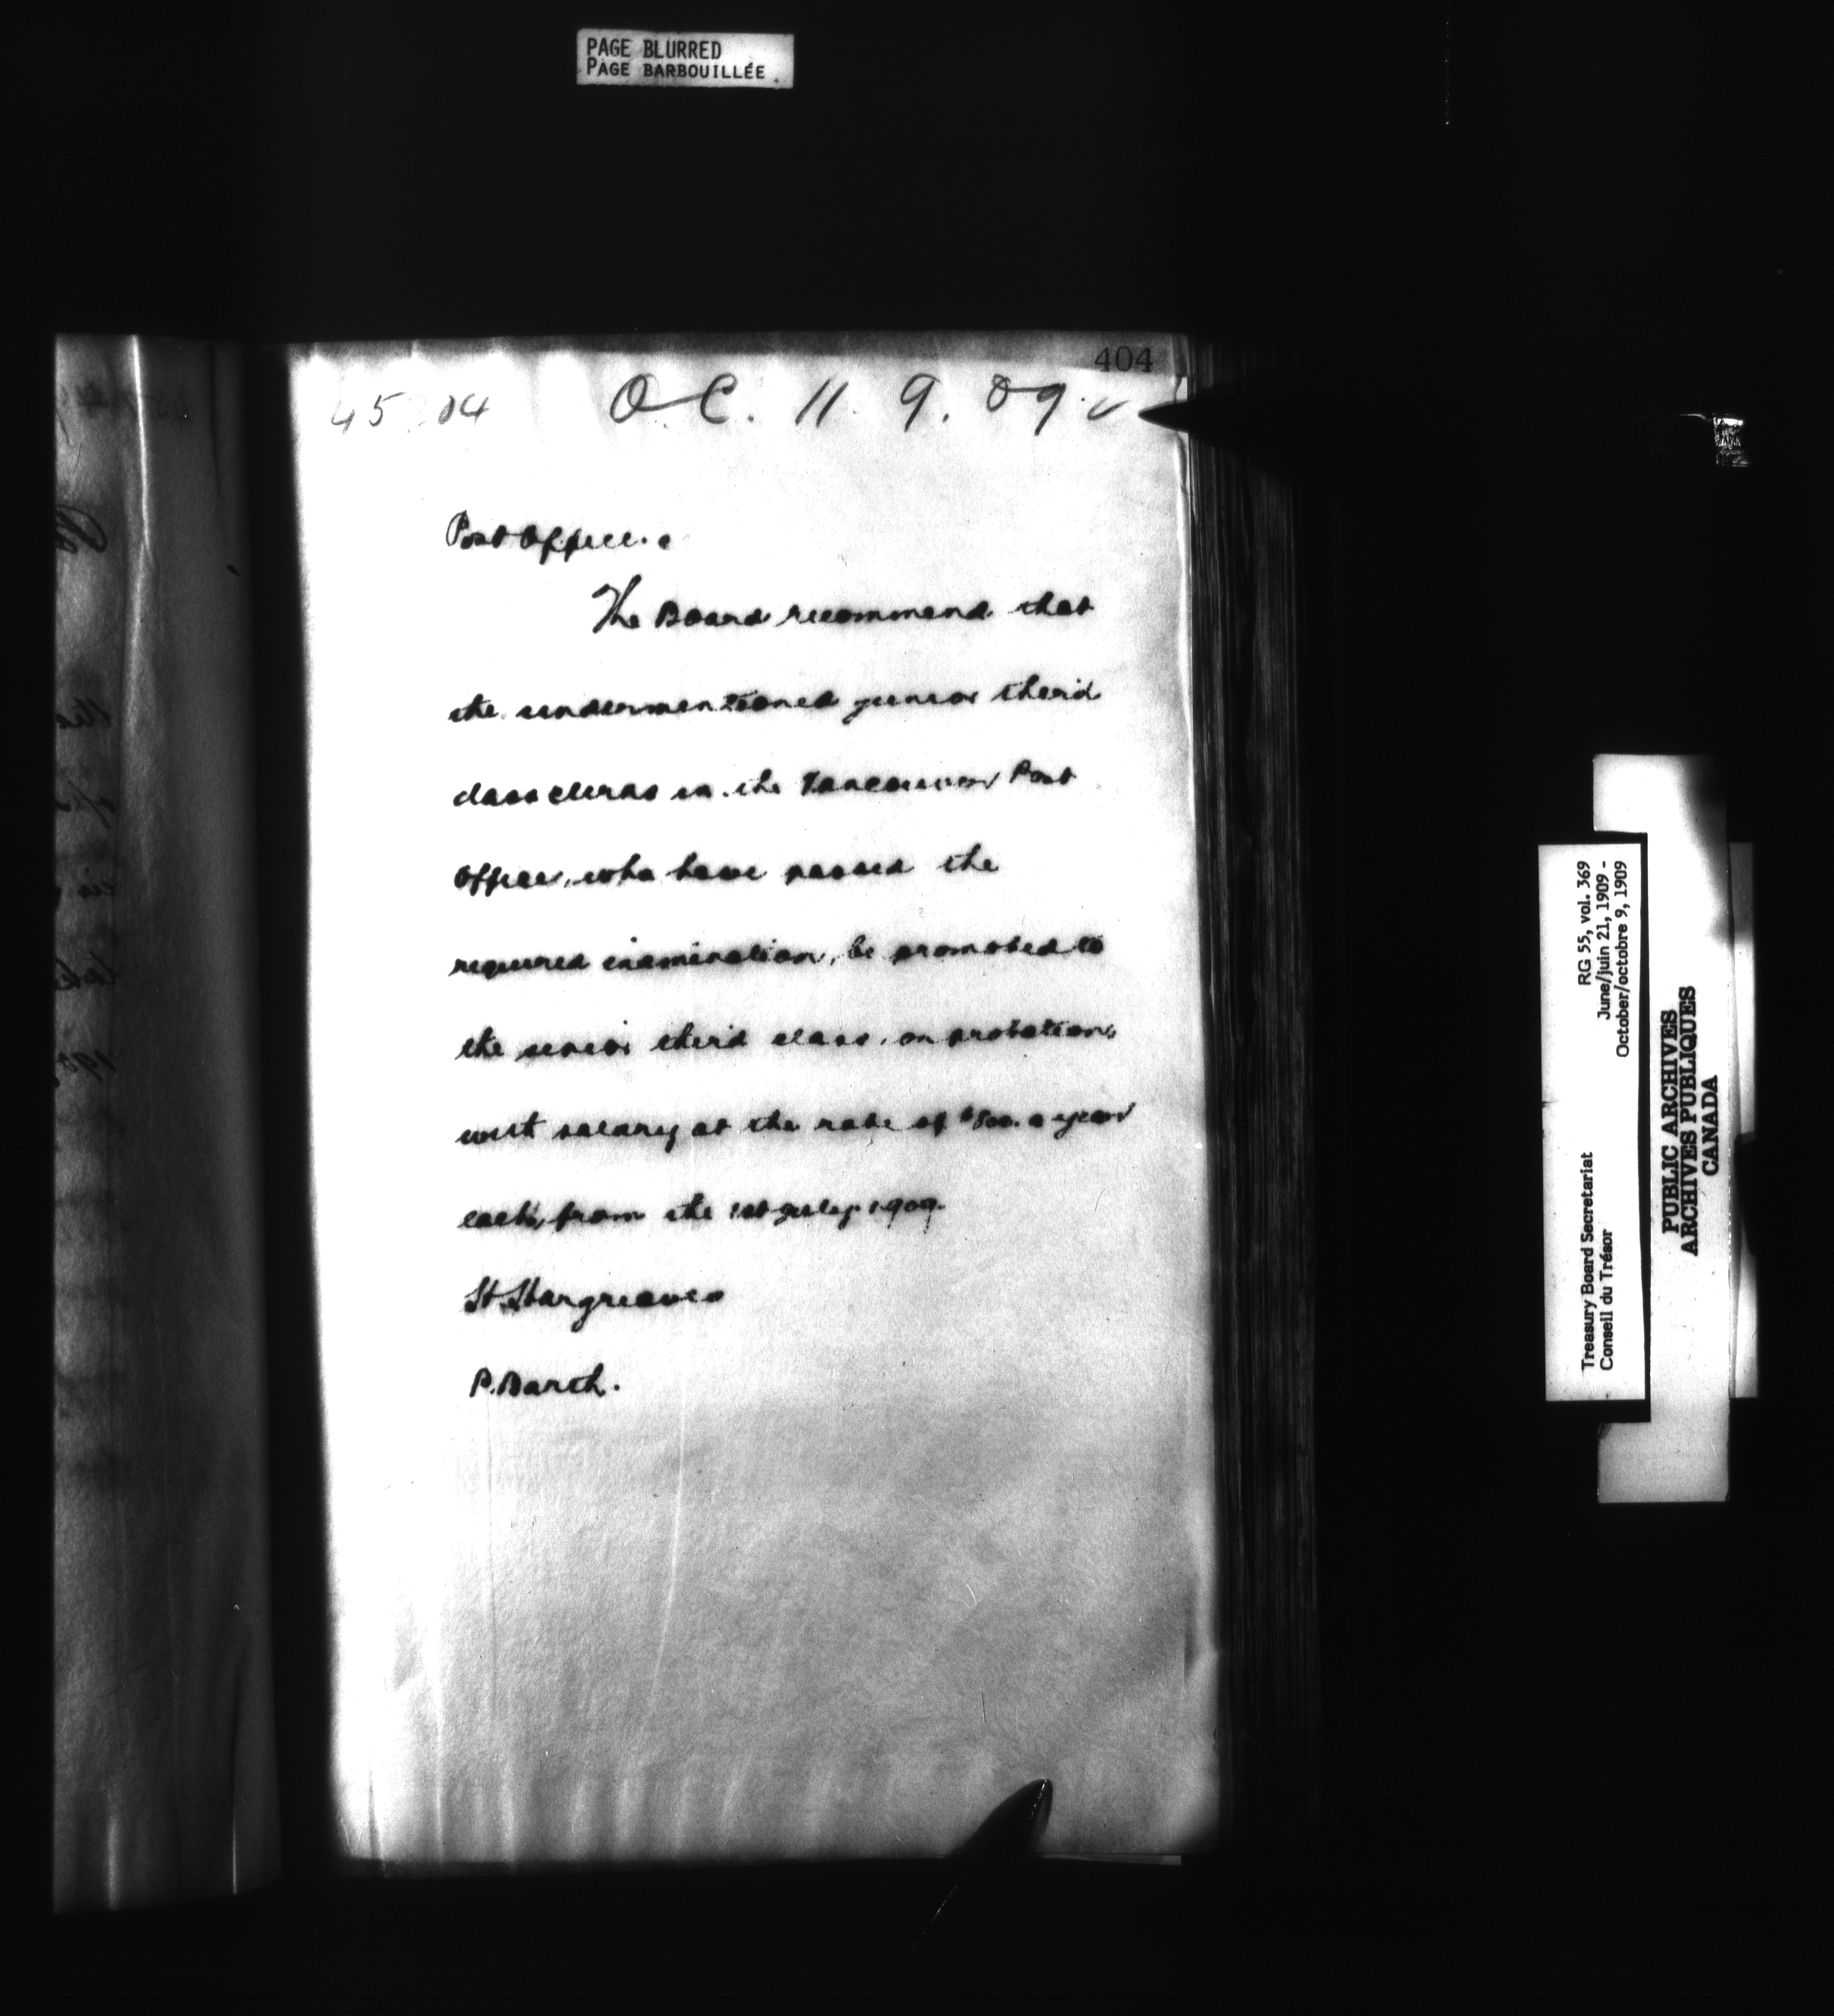 PAGE BLURRED
PAGE BARBOUILLÉE
404
O.C. 11. 9. 09.
Post Office.
The Board recommend that
the undermentioned junior third
class clerks in the Vancouver Post
Office, who have passed the
required examination, be promoted to
the senior third class, on probation,
with salary at the rate of $800. a year
each, from the 1st July 1909.
H. Hargreaves
P. Barth.
Treasury Board Secretariat
Conseil du Trésor
RG 55, vol. 369
June/juin 21, 1909 -
October/octobre 9, 1909
PUBLIC ARCHIVES
ARCHIVES PUBLIQUES
CANADA